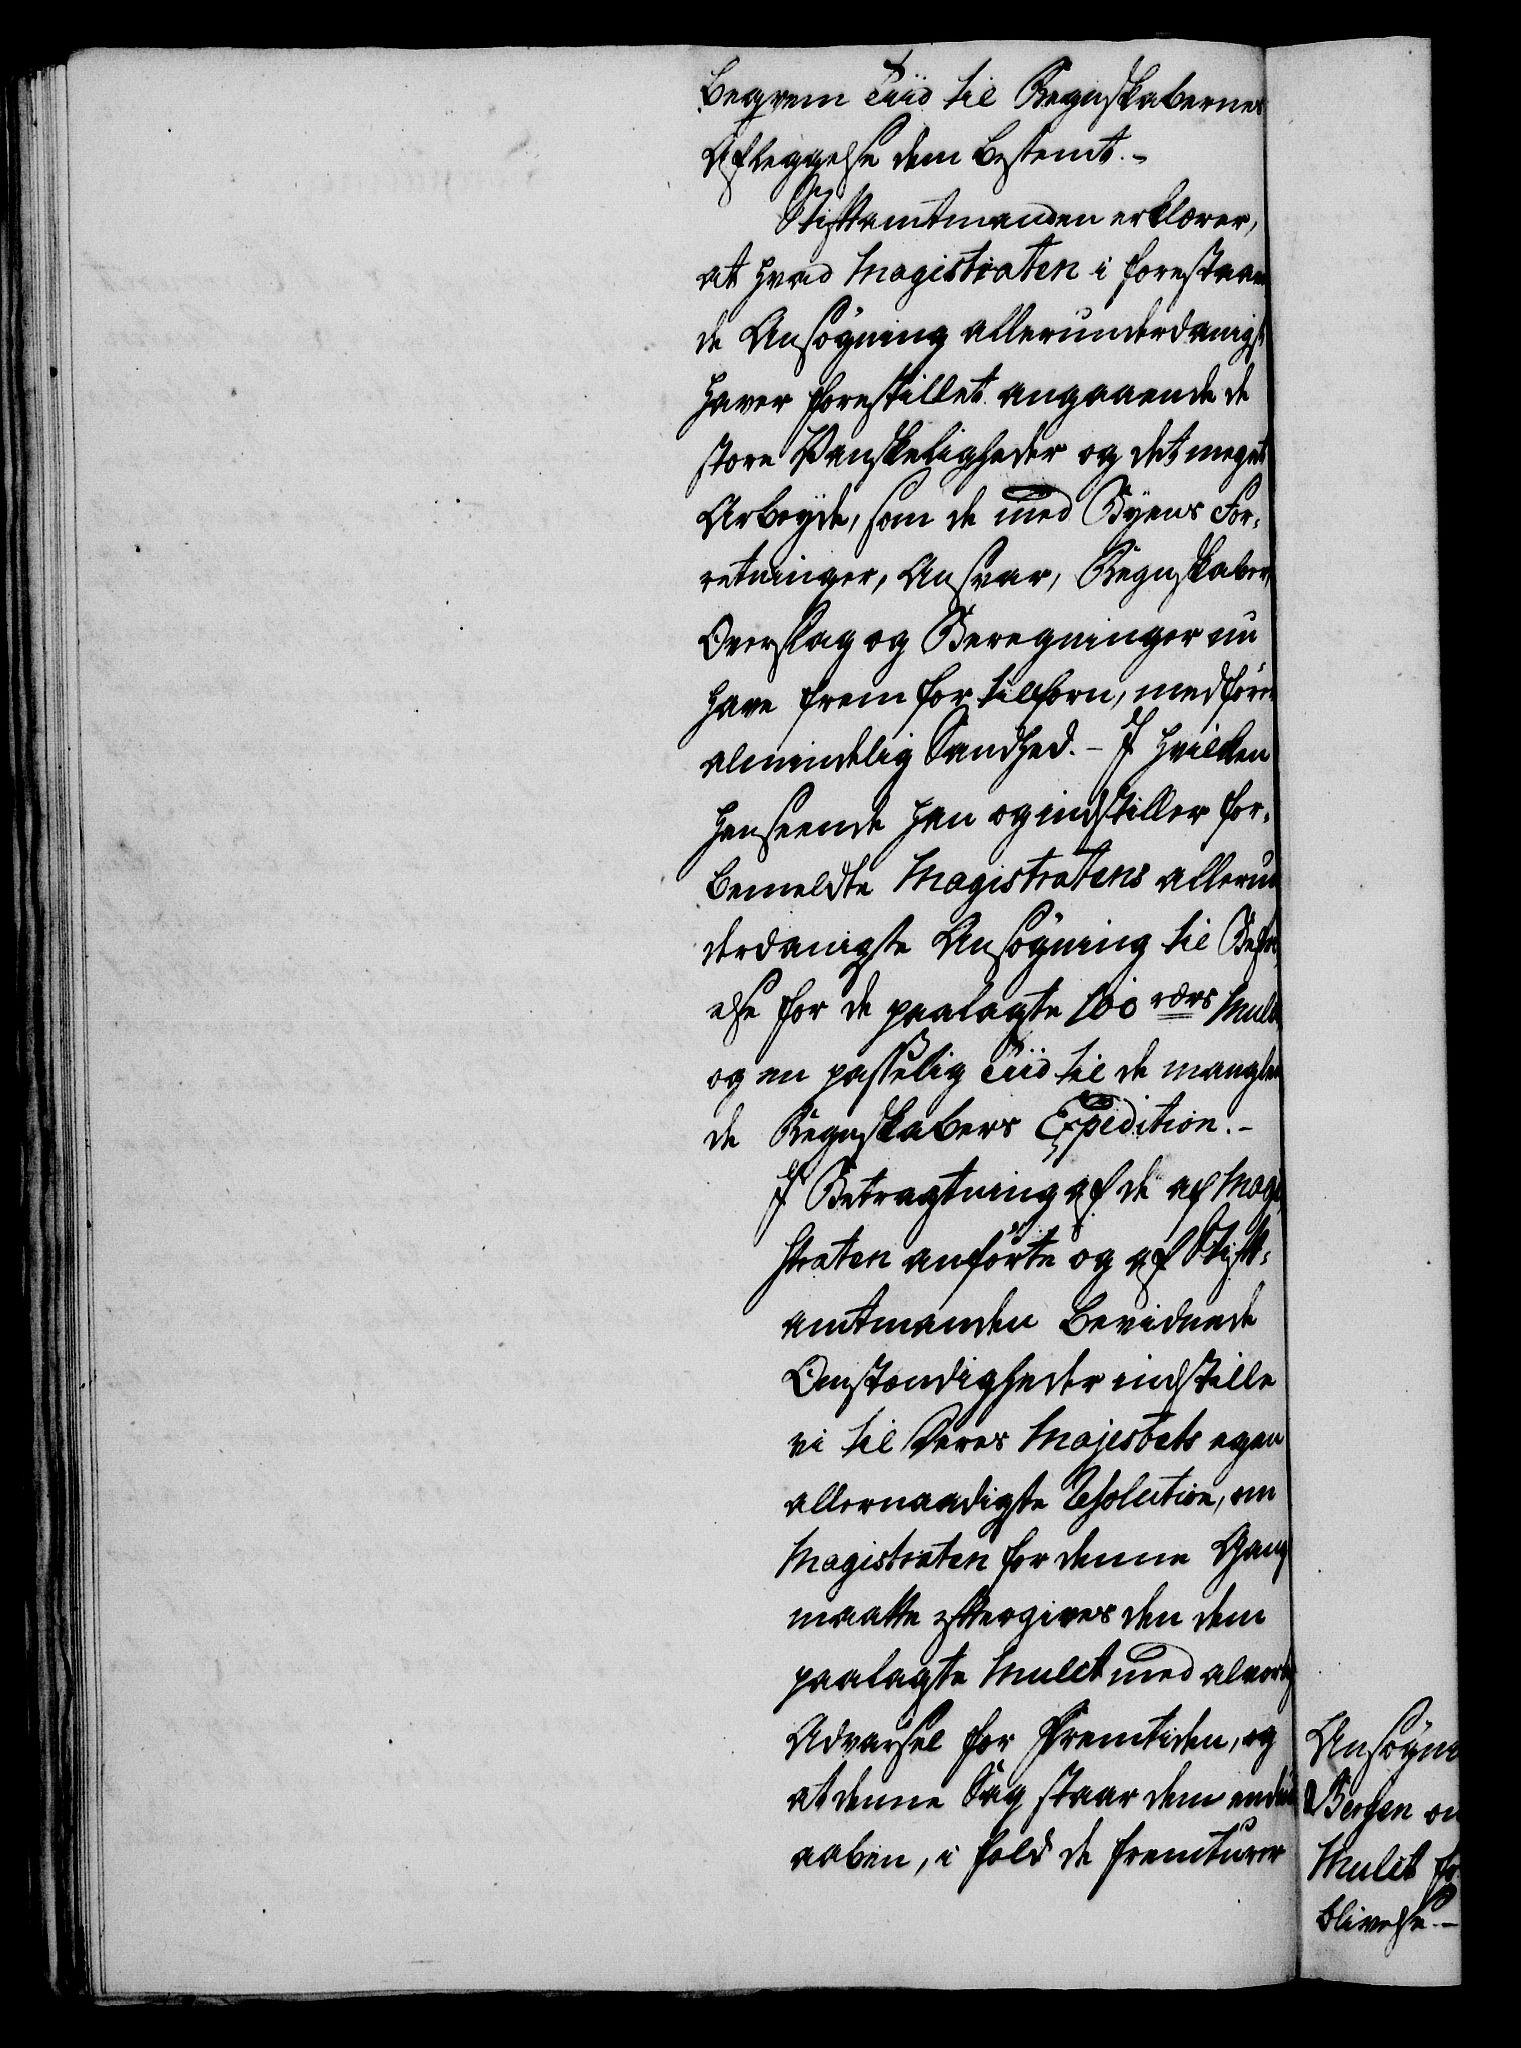 beqvem Tiid til Regnskabernes
Afleggelse dem bestemt.-
Stiftamtmanden erklærer,
at hvad Magistraten i forestaaen
de Ansøgning allerunderdanigst
haver forestillet angaaende de
store Vanskeligheder og det meget
Arbeyde, som de med Byens For-
retninger, Ansvar, Regnskaber,
Overslag og Beregninger nu
have frem for tilforn, medfører
almindelig Sandhed.- I hvilken
Henseende han og indstiller for-
bemeldte Magistratens allerun
derdanigste Ansøgning til Befri
else for de paalagte 100 rdrs Mulct
og en passelig Tiid til de manglen
de Regnskabers Expedition.-
I Betragtning af de af Magi
straten anførte og af Stift-
amtmanden bevidnede
Omstændigheder indstille
vi til Deres Majestets egen
allernaadigste Resolution, om
Magistraten for denne Gang
maatte eftergives den dem
paalagte Mulct med alvorlig
Advarsel for Fremtiden, og
at denne Sag staar dem endnu
aaben, i fald de fremturer
Ansøgni
Bergen om
Mulct for
blivelse.-